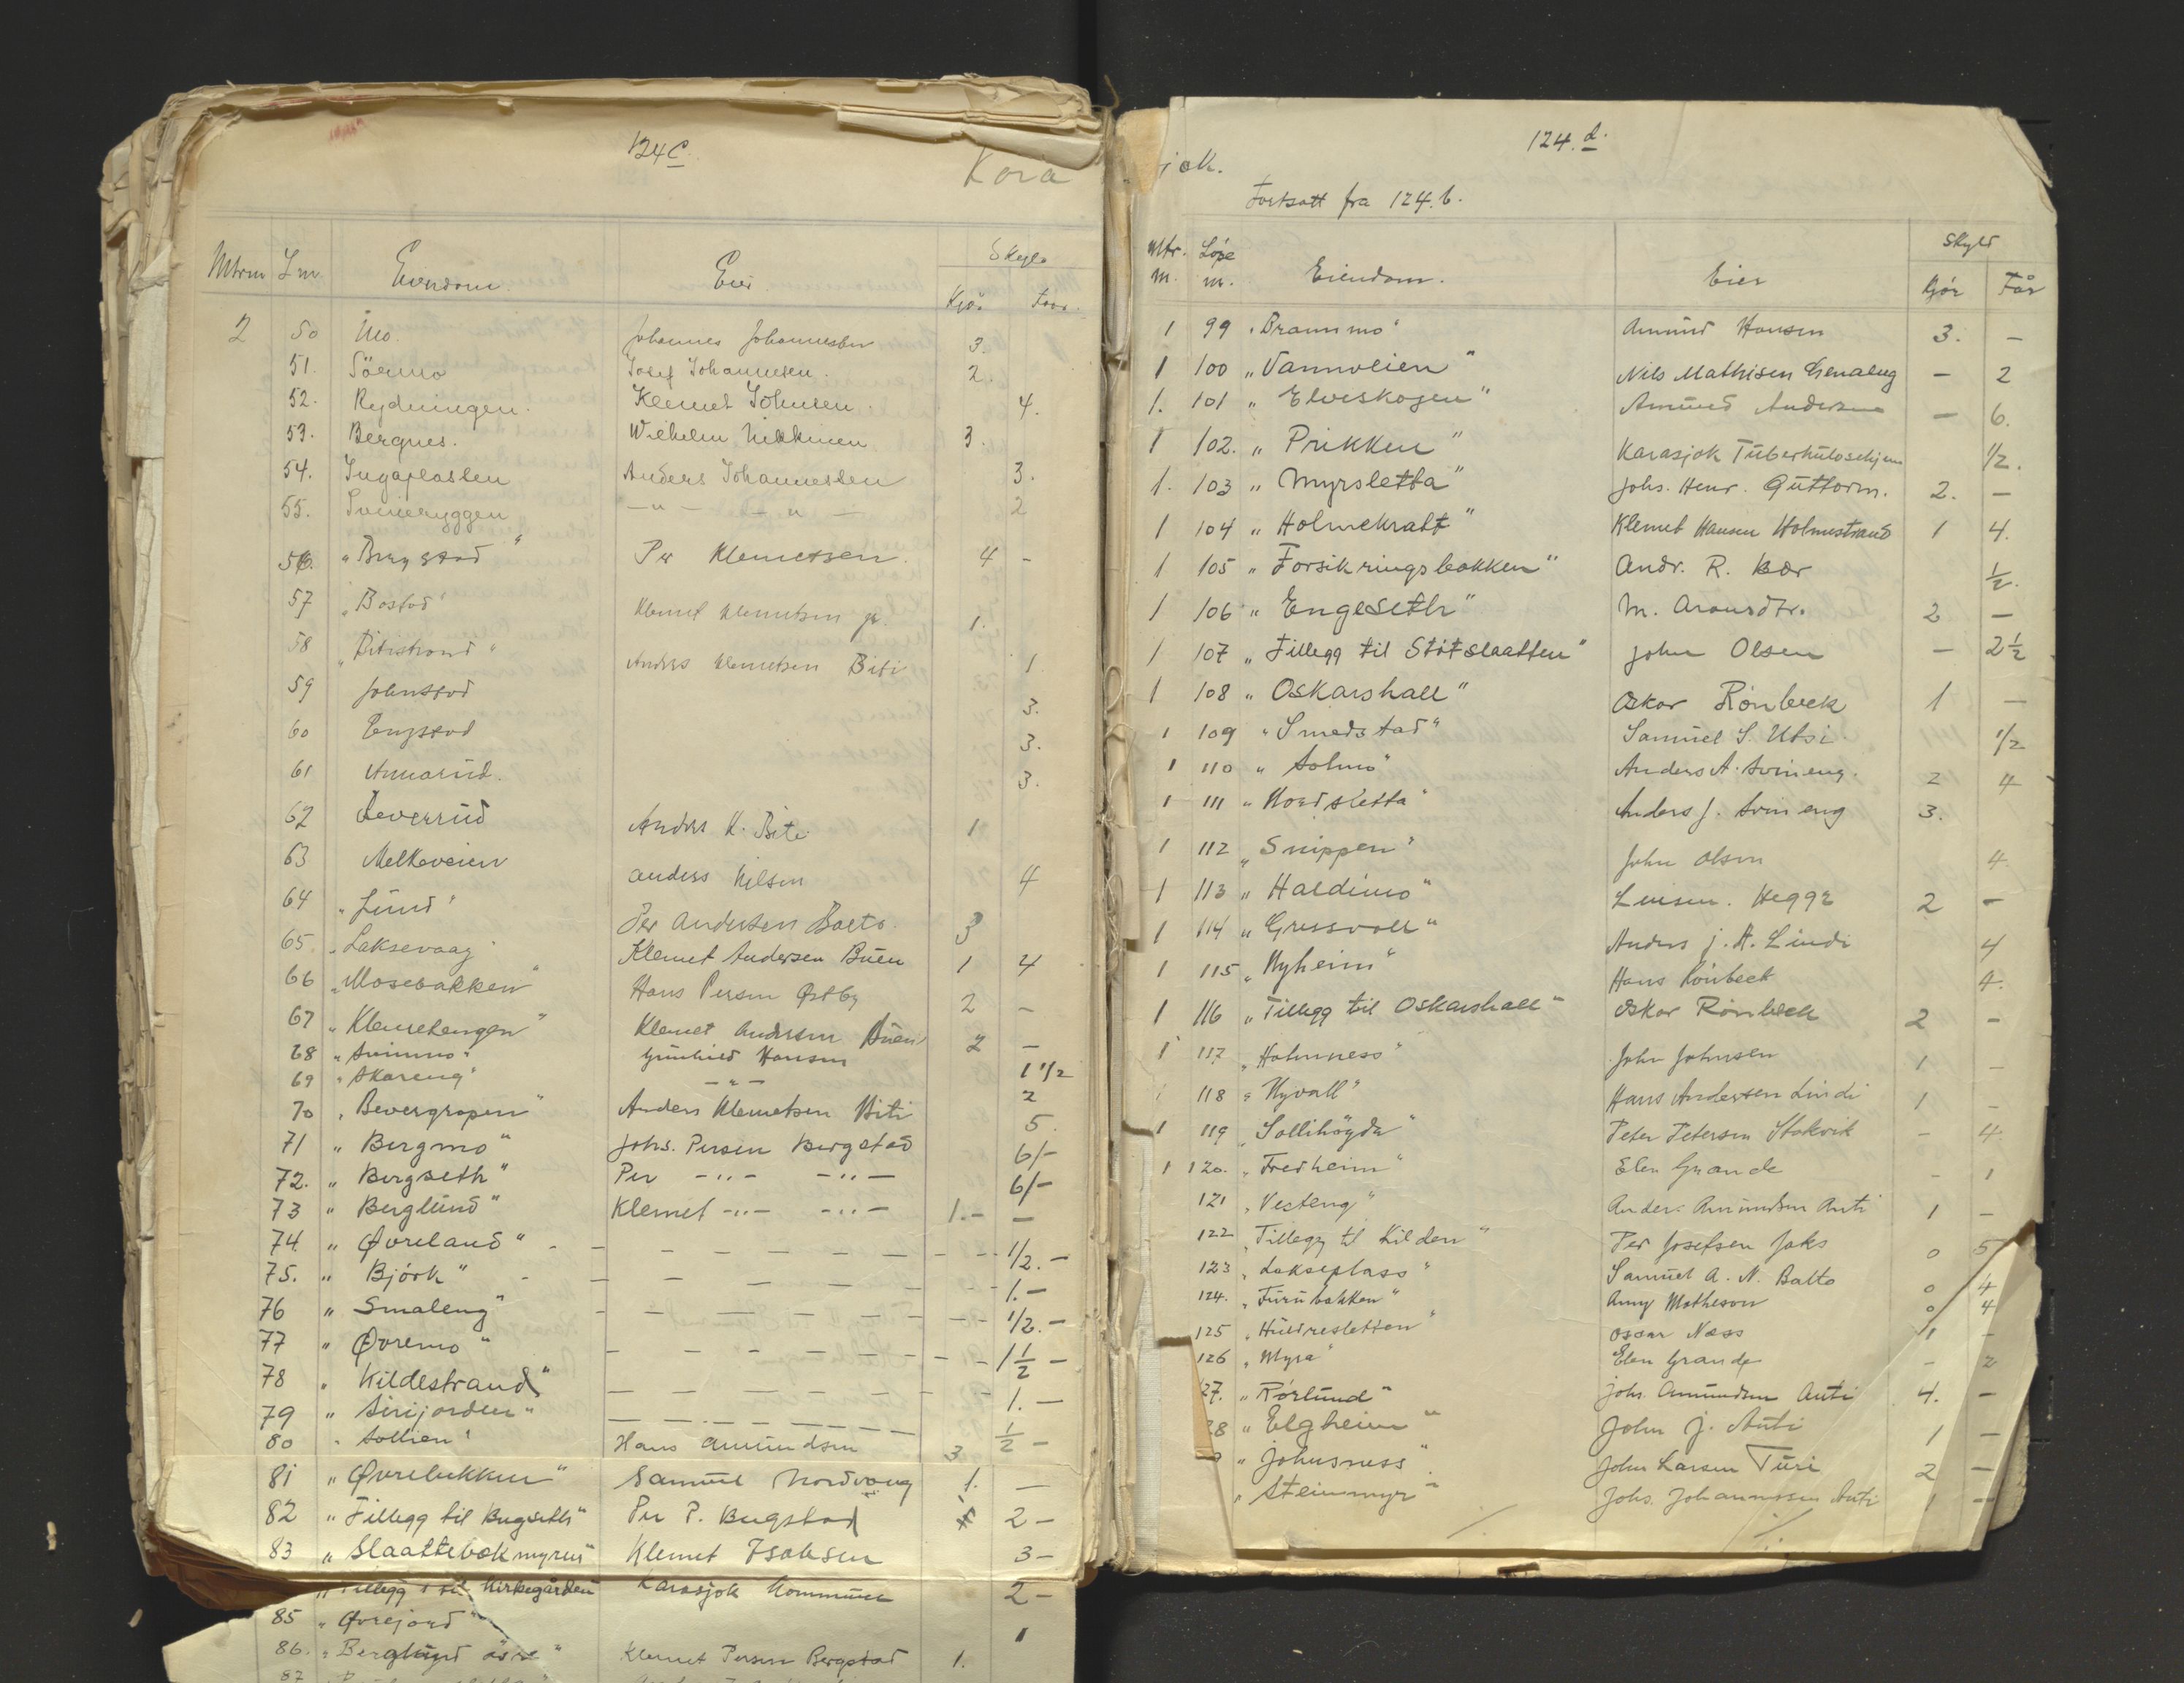 124 c.
Kara
Mtrnr L nr Eiendom. Eier. Skyld
Kjør Faar.
2 50 Mo. Johannes Johannessen 3.
51. Sörmo Josef Johannesen. 2.
52. Rydningen. Klemet Johnsen. 4.
53. Bergnes. Wilhelm Nikkinen 3.
54. Ingaplassen Anders Johannessen 3.
55. Svineryggen -"- -"- 2
56. "Brugstad" Per Klemetsen. 4 -
57 "Bostad" Klemet Klemetsen jr. 1.
58 "Bitistrand" Anders Klemetsen Biti 1
59 Johnstad 3.
60 Engstad 3.
61 Annarud. 3.
62 Leverrud Anders K. Biti 1
63 Melkeveien Anders Nilsen 4
64 "Lund" Per Andersen Balto. 3
65. "Laksevaag" Klemet Andersen Buen 1 4
66 "Mosebakken" Hans Persen Østby 2 -
67 "Klemetengen" Klemet Andersen Buen 2 -
68 "Svinmo" Gunhild Hansen 1 1/2
69 "Skareng" -"- 2
70 "Bevergropen" Anders Klemetsen Biti 5.
71 "Bergmo" Johs. Persen Bergstad 6/-
72. "Bergseth" Per -"- -"- 6/-
73 "Berglund" Klemet -"- -"- 1.- -
74. "Øvreland" - - - - - - - - - 1/2. -
75. "Bjørk" - - - - - - - - - 1. -
76 "Smaleng" - - - - - - - - - 1/2. -
77 "Øvremo" - - - - - - - - - 1 1/2 -
78 "Kildestrand" - - - - - - - - 1. -
79 "Sirijorden" - - - - - - - - 1/2 -
80 "Sollien" Hans Amundsen 3
81 "Øvrelukken" Samuel Nordvang 1. -
82 "Tillegg til Bugseth" Per P. Bugstad 2 -
83 "Slaattebokmyren" Klemet Isaksen 3 -
"Tillegg til Kirkegården Karasjok Kommune 2 -
85 "Øvrejord" 1
86. "Berglund øvre" Klemet Persen Bergstad 1.
87
124. d.
jok.
Fortsatt fra 124. b.
Mtr. nr. Løpe nr. Eiendom. Eier Skyld
Kjør Får
1 99 "Brannmo" Amund Hansen 3. -
1 100 "Vannveien" Nils Mathisen - 2
1. 101 "Elveskogen" Amund Andersen - 6.
1 102. "Prikken" Karasjok Tuberkulosehjem 1/2.
1. 103 "Myrsletta" Johs. Henr. Guttorm. 2. -
1 104 "Holmekratt" Klemet Hansen Holmestrand 1 4.
1 105 "Forsikringsbakken" Andr. R. Bær 1/2.
1 106 "Engeseth" M. Aronsdtr. 2 -
1 107 "Tillegg til Støtslaatten" John Olsen - 2 1/2
1 108 "Oskarshall" Oskar Rønbeck 1 -
1 109 "Smedstad" Samuel S. Utsi 1/2
1 110 "Solmo" Anders A. Svineng. 2 4
1 111 "Nordsletta" Anders J. Svineng 3.
1 112 "Snippen" John Olsen 4
1 113 "Haldimo" Lensm. Hegge 2 -
1 114 "Gressvoll" Anders J. H. Lindi 4
1 115 "Nyheim" Hans Rönbeck 4.
1 116 "Tillegg til Oskarshall" Oskar Rønbeck 2 -
1 117 "Holmness" John Johnsen 1 -
118 "Nyvoll" Hans Andersen Lindi 1 -
1 119 "Sollihøgda" Peter Petersen Stokvik - 4
1 120. "Fredheim" Elen Grande - 1
121 "Vesteng" Anders Amundsen Anti 1 -
122 "Tillegg til Kilden" Per Josefsen Jaks 0 5
123 "Lakseplass" Samuel A. N. Balto 0 4
124. "Furubakken" Anny Matheson 0 4
125 "Huldresletten" Oscar Næss 1 -
126 "Myra" Elen Grande - 2
27. "Rørlund" Johs. Amundsen Anti 4. -
28 "Elgheim" John J. Anti 1 -
"Johnsness" John Larsen Turi 2 -
"Steinmyr" Johs. Johannessen Anti 1 -